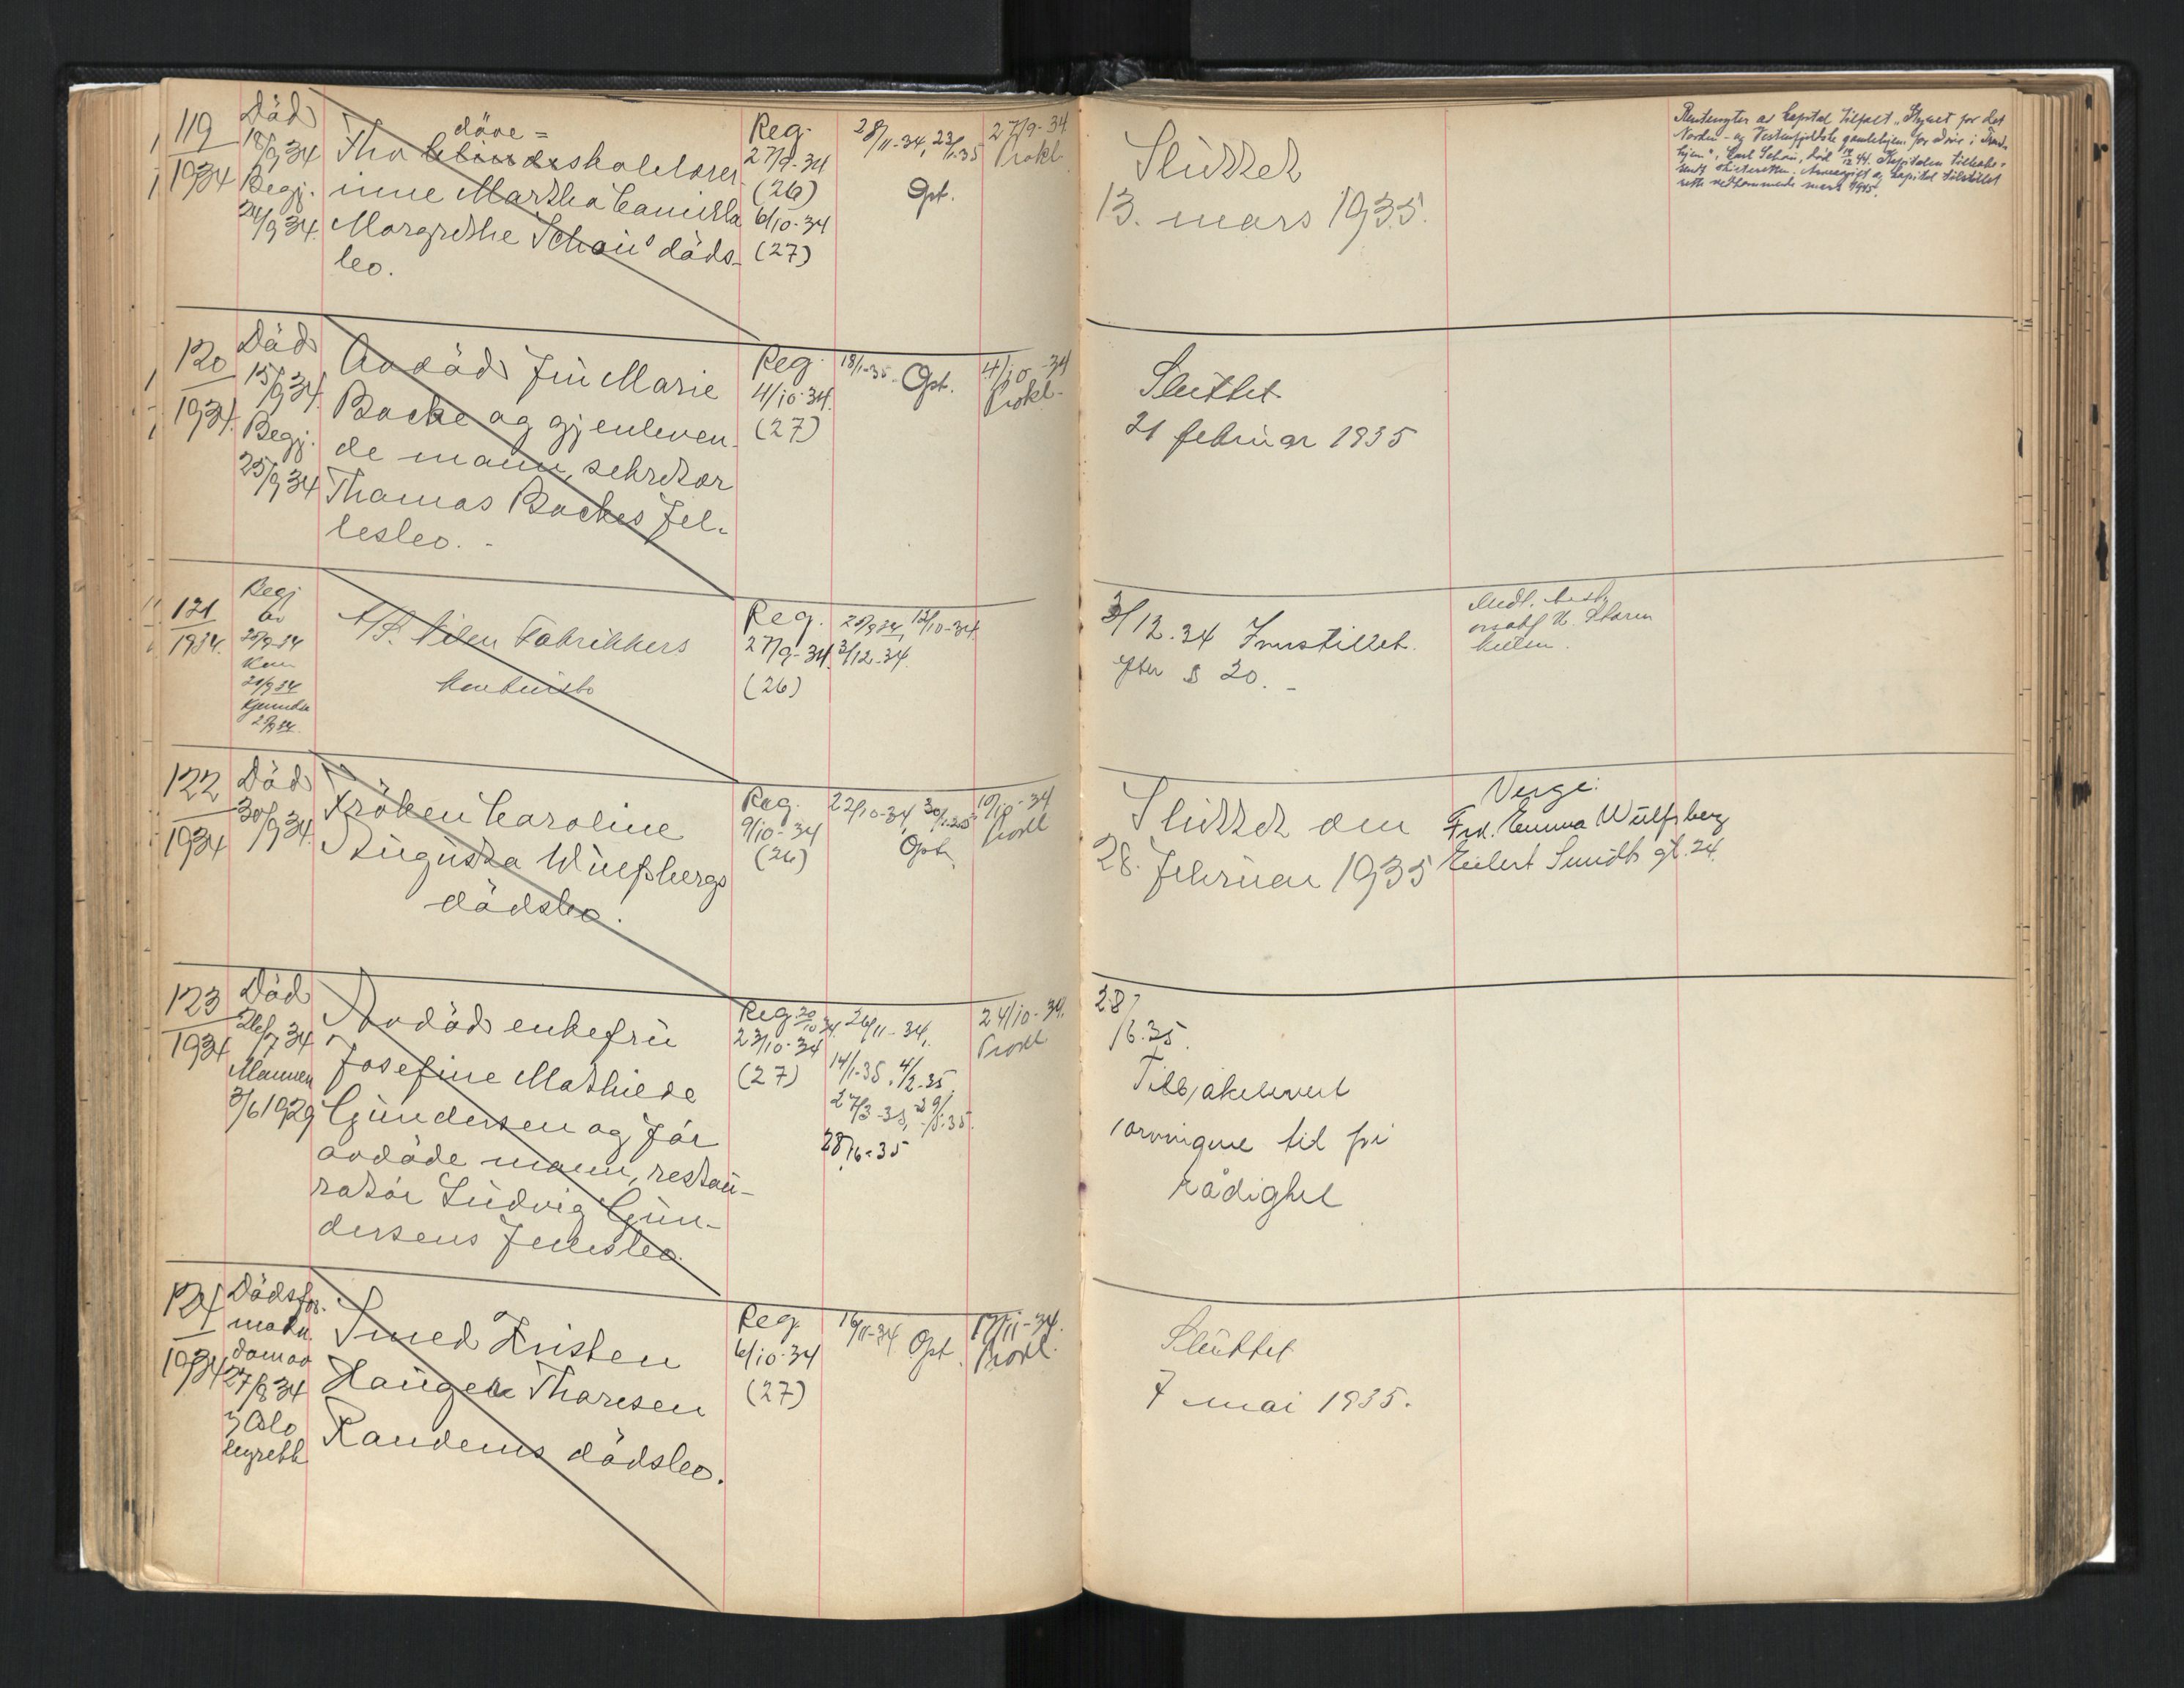 119
1934
Död
18/9 34
Begj.
24/9 34.
döve=
Fhv skolelærer-
inne Martha Camilla
Margrethe Schøin's döds-
bo.
Reg.
27/9-34
(26)
6/10-34
(27)
28/11-34, 23/1-35
Opt.
27/9-34
Prokl.
Sluttet
13. mars 1935.
Rentenyter av kapital tilfalt "Styret for det
Norden- og Vestenfjeldske gamlehjem for døve i Trond-
hjem", Carl Schøin, död 44. Kapitalen tilbake-
sendt skifteretten. Arveavgift og kapital tilstillet
rette vedkommende mars 1945.
120
1934.
Död
15/9 34.
Begj.
25/9 34
Avdöd fru Marie
Backe og gjenleven-
de mann, sekretær
Thomas Backes fel-
lesbo. -
Reg.
4/10-34.
(27)
18/1-35. Opt.
4/10-34
Prokl.
Sluttet
21 februar 1935
121
1934.
Begj
av
25/9-34
Kjennelse
A/S. Fabrikkers
konkursbo
Reg.
27/9-34.
(26)
12/10-34.
3/12-34.
3/12.34 Innstillet.
efter § 20. -
122
1934
Död
30/9 34.
Fröken Caroline
Augusta Wulfsbergs
dödsbo.
Reg.
9/10-34
(26)
22/10-34, 30/1-35
Opt.
10/10-34
Prokl
Sluttet den
28. februar 1935
Verge:
Frk. Emma Wulfsberg
Eilert Sundts gt. 24.
123
1934
Död
26/7 34
Mannen
3/6 1929
Avdöd enkefru
Josefine Mathilde
Gundersen og för
avdöde mann, restau-
ratör Ludvig Gun-
dersens fellesbo.
Reg. 20/10 34.
23/10-34
(27)
26/11-34,
14/1-35, 4/2-35,
27/3-35, 29/5-35.
28/6-35
24/10-34.
Prokl
28/6.35.
Tilbakelevert
arvingene til fri
rådighet
124
1934
Dödsfor-
modn.
dom av
27/8 34
Oslo
byrett
Smed Kristen
Haugen Thoresen
Randems dödsbo.
Reg
6/10-34
(27)
16/11-34 Opt.
17/11-34.
Prokl.
Sluttet
7 mai 1935.